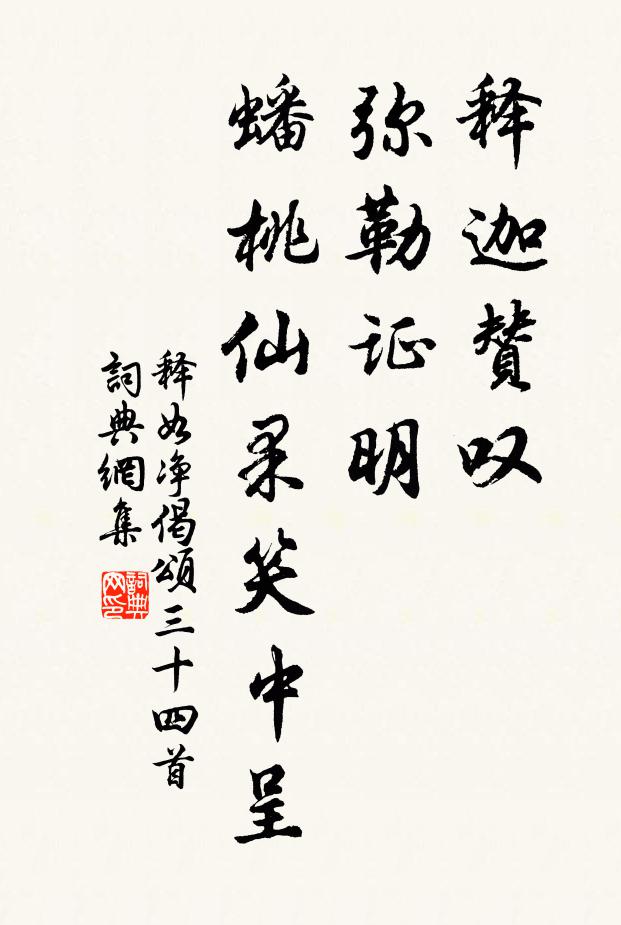 释迦贊叹
弥勒证明
蟠桃仙果笑中呈
释如净偈頌三十四首
詞典網集
詞典网印